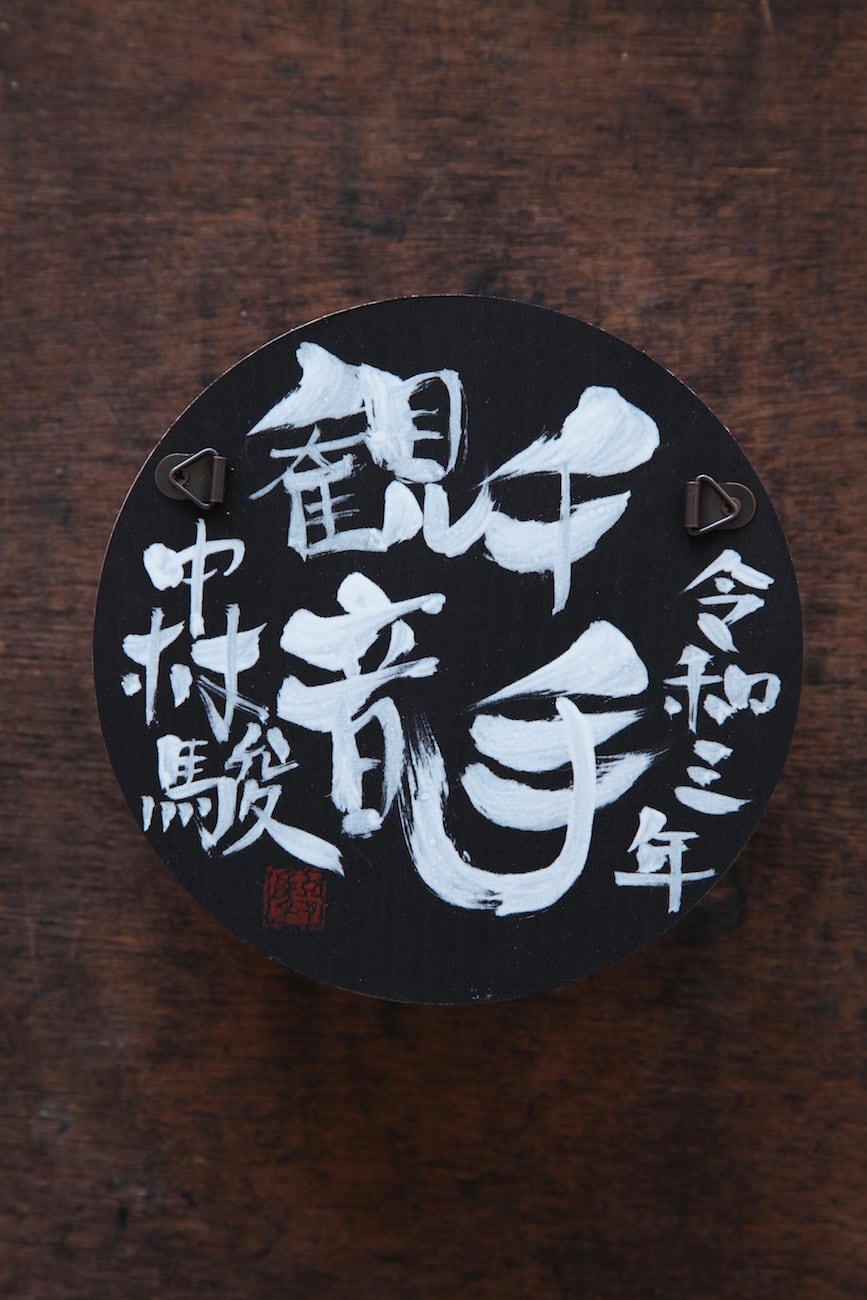 令和三年
千手
観音
中村駿